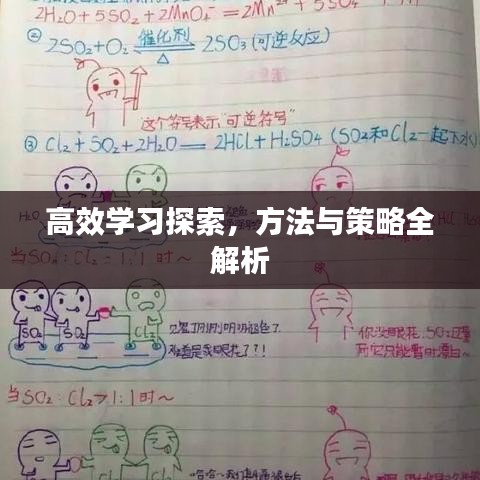 2H₂O+5SO₂+2MnO₄⁻=2Mn²⁺+5SO₄
② 2SO₂+O₂ 催化剂 2SO₃(可逆反应)
△
这个符号表示“可逆符号”
③ Cl₂+SO₂+2H₂O=2HCl+H₂SO₄(SO₂和Cl₂一起下水)
H₂O
高效学习探索，方法与策略全
解析
当SO₂:Cl₂=1:1时~
SO₂ SO₂ Cl₂
你没眼花,SO₂过量
而它只能暂时漂白~
当SO₂:Cl₂>1:1时~